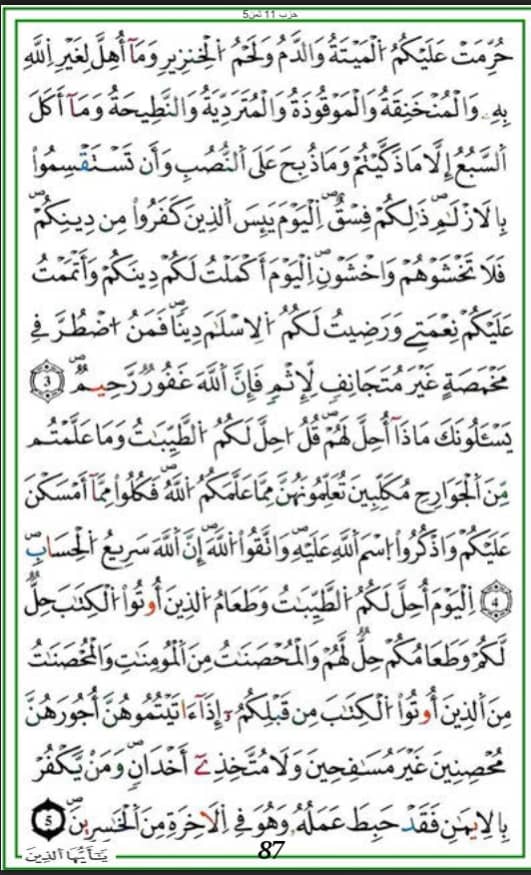 حزب 11 ثمن5
حُرِّمَتْ عَلَيْكُمُ اُلْمَيْتَةُ وَالدَّمُ وَلَحْمُ اُلْخِنزِيرِ وَمَآ أُهِلَّ لِغَيْرِ اِللَّهِ
بِهِۦ وَالْمُنْخَنِقَةُ وَالْمَوْقُوذَةُ وَالْمُتَرَدِّيَةُ وَالنَّطِيحَةُ وَمَآ أَكَلَ
اَلسَّبُعُ إِلَّا مَا ذَكَّيْتُمْ وَمَا ذُبِحَ عَلَى اَلنُّصُبِ وَأَن تَسْتَقْسِمُواْ
بِالَازْلَٰمِ ذَٰلِكُمْ فِسْقٌ اِلْيَوْمَ يَئِسَ اَلذِينَ كَفَرُواْ مِن دِينِكُمْ
فَلَا تَخْشَوْهُمْ وَاخْشَوْنِ اِلْيَوْمَ أَكْمَلْتُ لَكُمْ دِينَكُمْ وَأَتْمَمْتُ
عَلَيْكُمْ نِعْمَتِے وَرَضِيتُ لَكُمُ اُلِاسْلَٰمَ دِيناٗ فَمَنُ اُضْطُرَّ فِے
مَخْمَصَةٍ غَيْرَ مُتَجَانِفٖ لِّإِثْمٖ فَإِنَّ اَللَّهَ غَفُورٞ رَّحِيمٞ 3
يَسْـَٔلُونَكَ مَاذَآ أُحِلَّ لَهُمْ قُلُ احِلَّ لَكُمُ اُلطَّيِّبَٰتُ وَمَا عَلَّمْتُم
مِّنَ اَلْجَوَارِحِ مُكَلِّبِينَ تُعَلِّمُونَهُنَّ مِمَّا عَلَّمَكُمُ اُللَّهُ فَكُلُواْ مِمَّآ أَمْسَكْنَ
عَلَيْكُمْ وَاذْكُرُواْ اُسْمَ اَللَّهِ عَلَيْهِ وَاتَّقُواْ اُللَّهَ إِنَّ اَللَّهَ سَرِيعُ اُلْحِسَابِ
4 اِلْيَوْمَ أُحِلَّ لَكُمُ اُلطَّيِّبَٰتُ وَطَعَامُ اُلذِينَ أُوتُواْ اُلْكِتَٰبَ حِلّٞ
لَّكُمْ وَطَعَامُكُمْ حِلّٞ لَّهُمْ وَالْمُحْصَنَٰتُ مِنَ اَلْمُومِنَٰتِ وَالْمُحْصَنَٰتُ
مِنَ اَلذِينَ أُوتُواْ اُلْكِتَٰبَ مِن قَبْلِكُمُۥٓ إِذَآ ءَاتَيْتُمُوهُنَّ أُجُورَهُنَّ
مُحْصِنِينَ غَيْرَ مُسَٰفِحِينَ وَلَا مُتَّخِذِےٓ أَخْدَانٖ وَمَنْ يَّكْفُرْ
بِالِايمَٰنِ فَقَدْ حَبِطَ عَمَلُهُۥ وَهُوَ فِے اِلَاخِرَةِ مِنَ اَلْخَٰسِرِينَ 5
يَٰٓأَيُّهَا اَلذِينَ
87